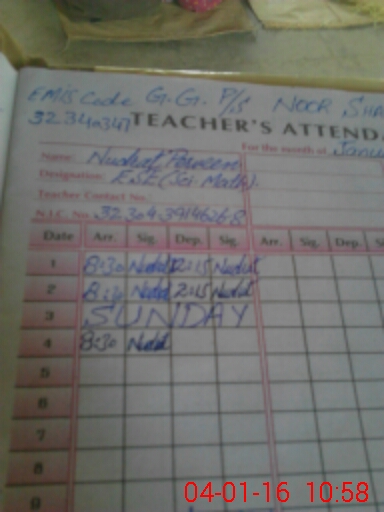 EMIS Code G.G. P/S NOOR SHA
32340347 TEACHER'S ATTENDA
For the month of Janu
Name: Nudrat Parveen
Designation: ESE (Sci Math).
Teacher Contact No.
N.I.C. No.
Date Arr. Sig. Dep. Sig. Arr. Sig. Dep. S
1 8:30 Nudrat 12:15 Nudrat
2 8:30 Nudrat 12:15 Nudrat
3 SUNDAY
4 8:30 Nudrat
5
6
7
8
9
04-01-16 10:58